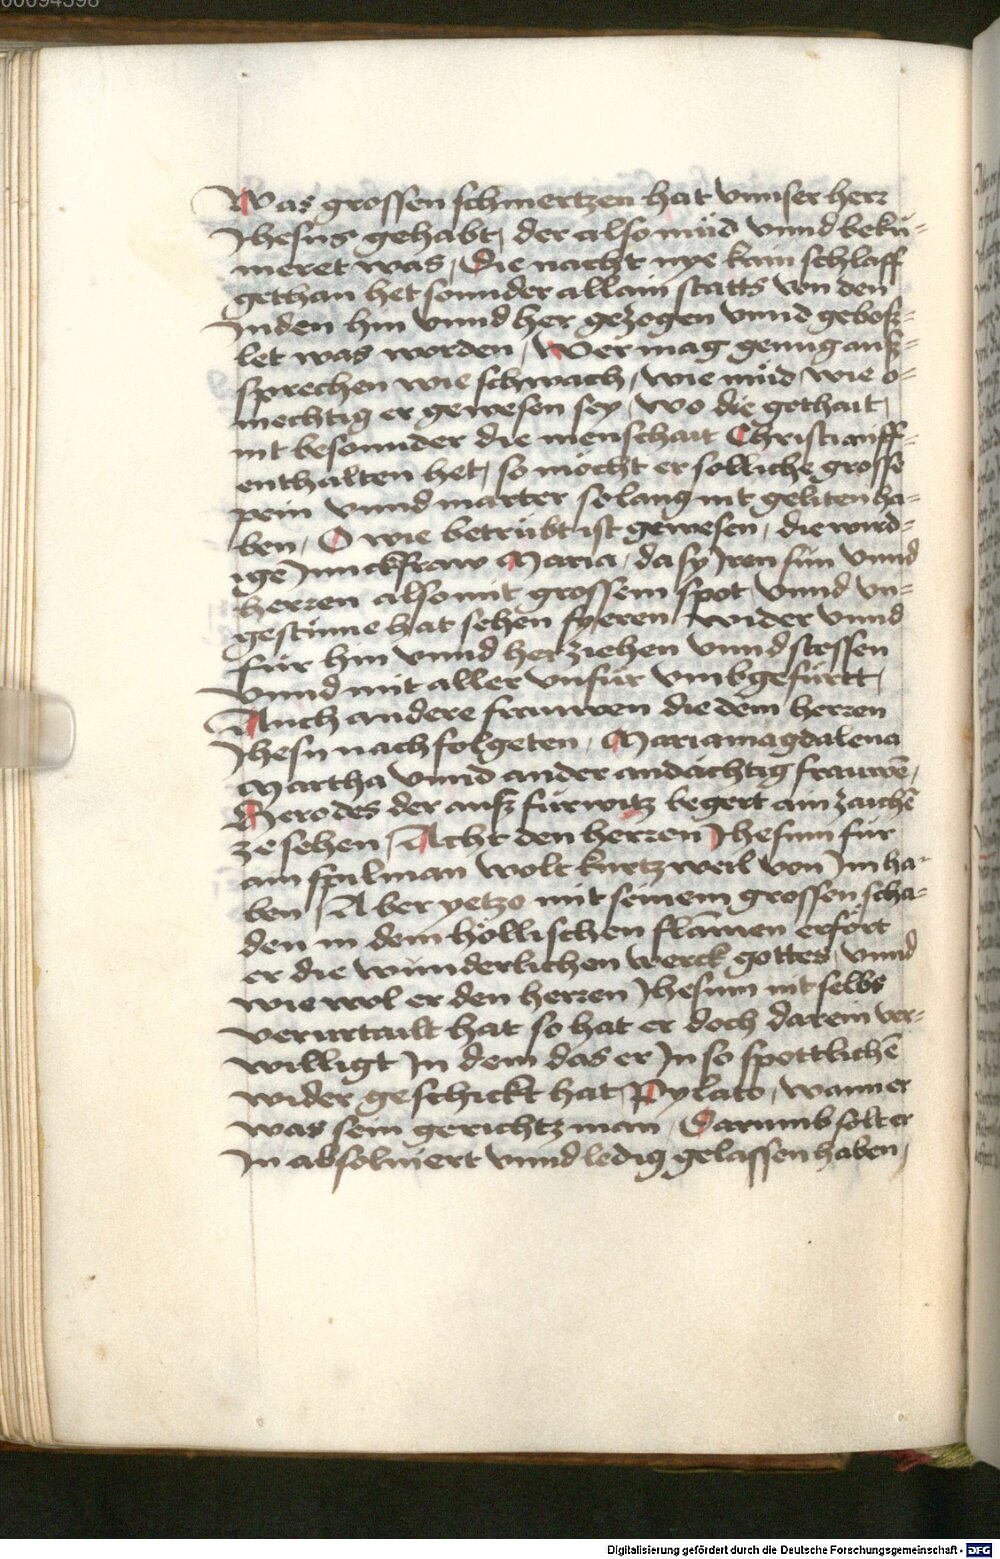 00094398
Was grossen schmertzen hat vnnser herr
Jhesus gehabt, der also müd vnnd bekü-
meret was, Die nacht nye kain schlaff
gethan het sonnder allain statts von den
Juden hin vnnd her gezogen vnnd geboß-
let was worden, Wer mag genug auß-
sprechen wie schwach, wie müd, wie o-
mechtig er gewesen sey, wo die gothait,
nit besonnder die menschait Christi auff-
enthalten het, so möcht er solliche grosse
pein vnnd marter so lang nit geliten ha-
ben, O wie betrübt ist gewesen, die wird-
ige Junckfraw Maria, da sy Iren sün vnnd
herren also mit grossem spot vnnd vn-
gestimme hat sehen fyeren, wider vnnd
für hin vnnd her ziehen vnnd stossen
vnnd mit aller vnfür vmbgefürtt,
Auch andere frauwen die dem herren
Jhesu nachfolgeten, Maria magdalena
Martha vnnd ander andächtig frauwē,
Herodes der auß fürwitz begert ain zaichē
ze sehen, Acht den herren Jhesum für
ain spilman wolt kurtzweil von Im ha-
ben, Aber yetzo mit seinem grossen scha-
den in dem höllischen flāmen erfört
er die wunderlichen werck gottes, vnnd
wiewol er den herren Jhesum nit selbs
verurtailt hat so hat er doch darein ver-
willigt In dem das er In so spottlichē
wider geschickt hat Pylato, wann er
was sein gerichtzman, Darumb solt er
In absoluiert vnnd ledig gelassen haben,
Digitalisierung gefördert durch die Deutsche Forschungsgemeinschaft - DFG